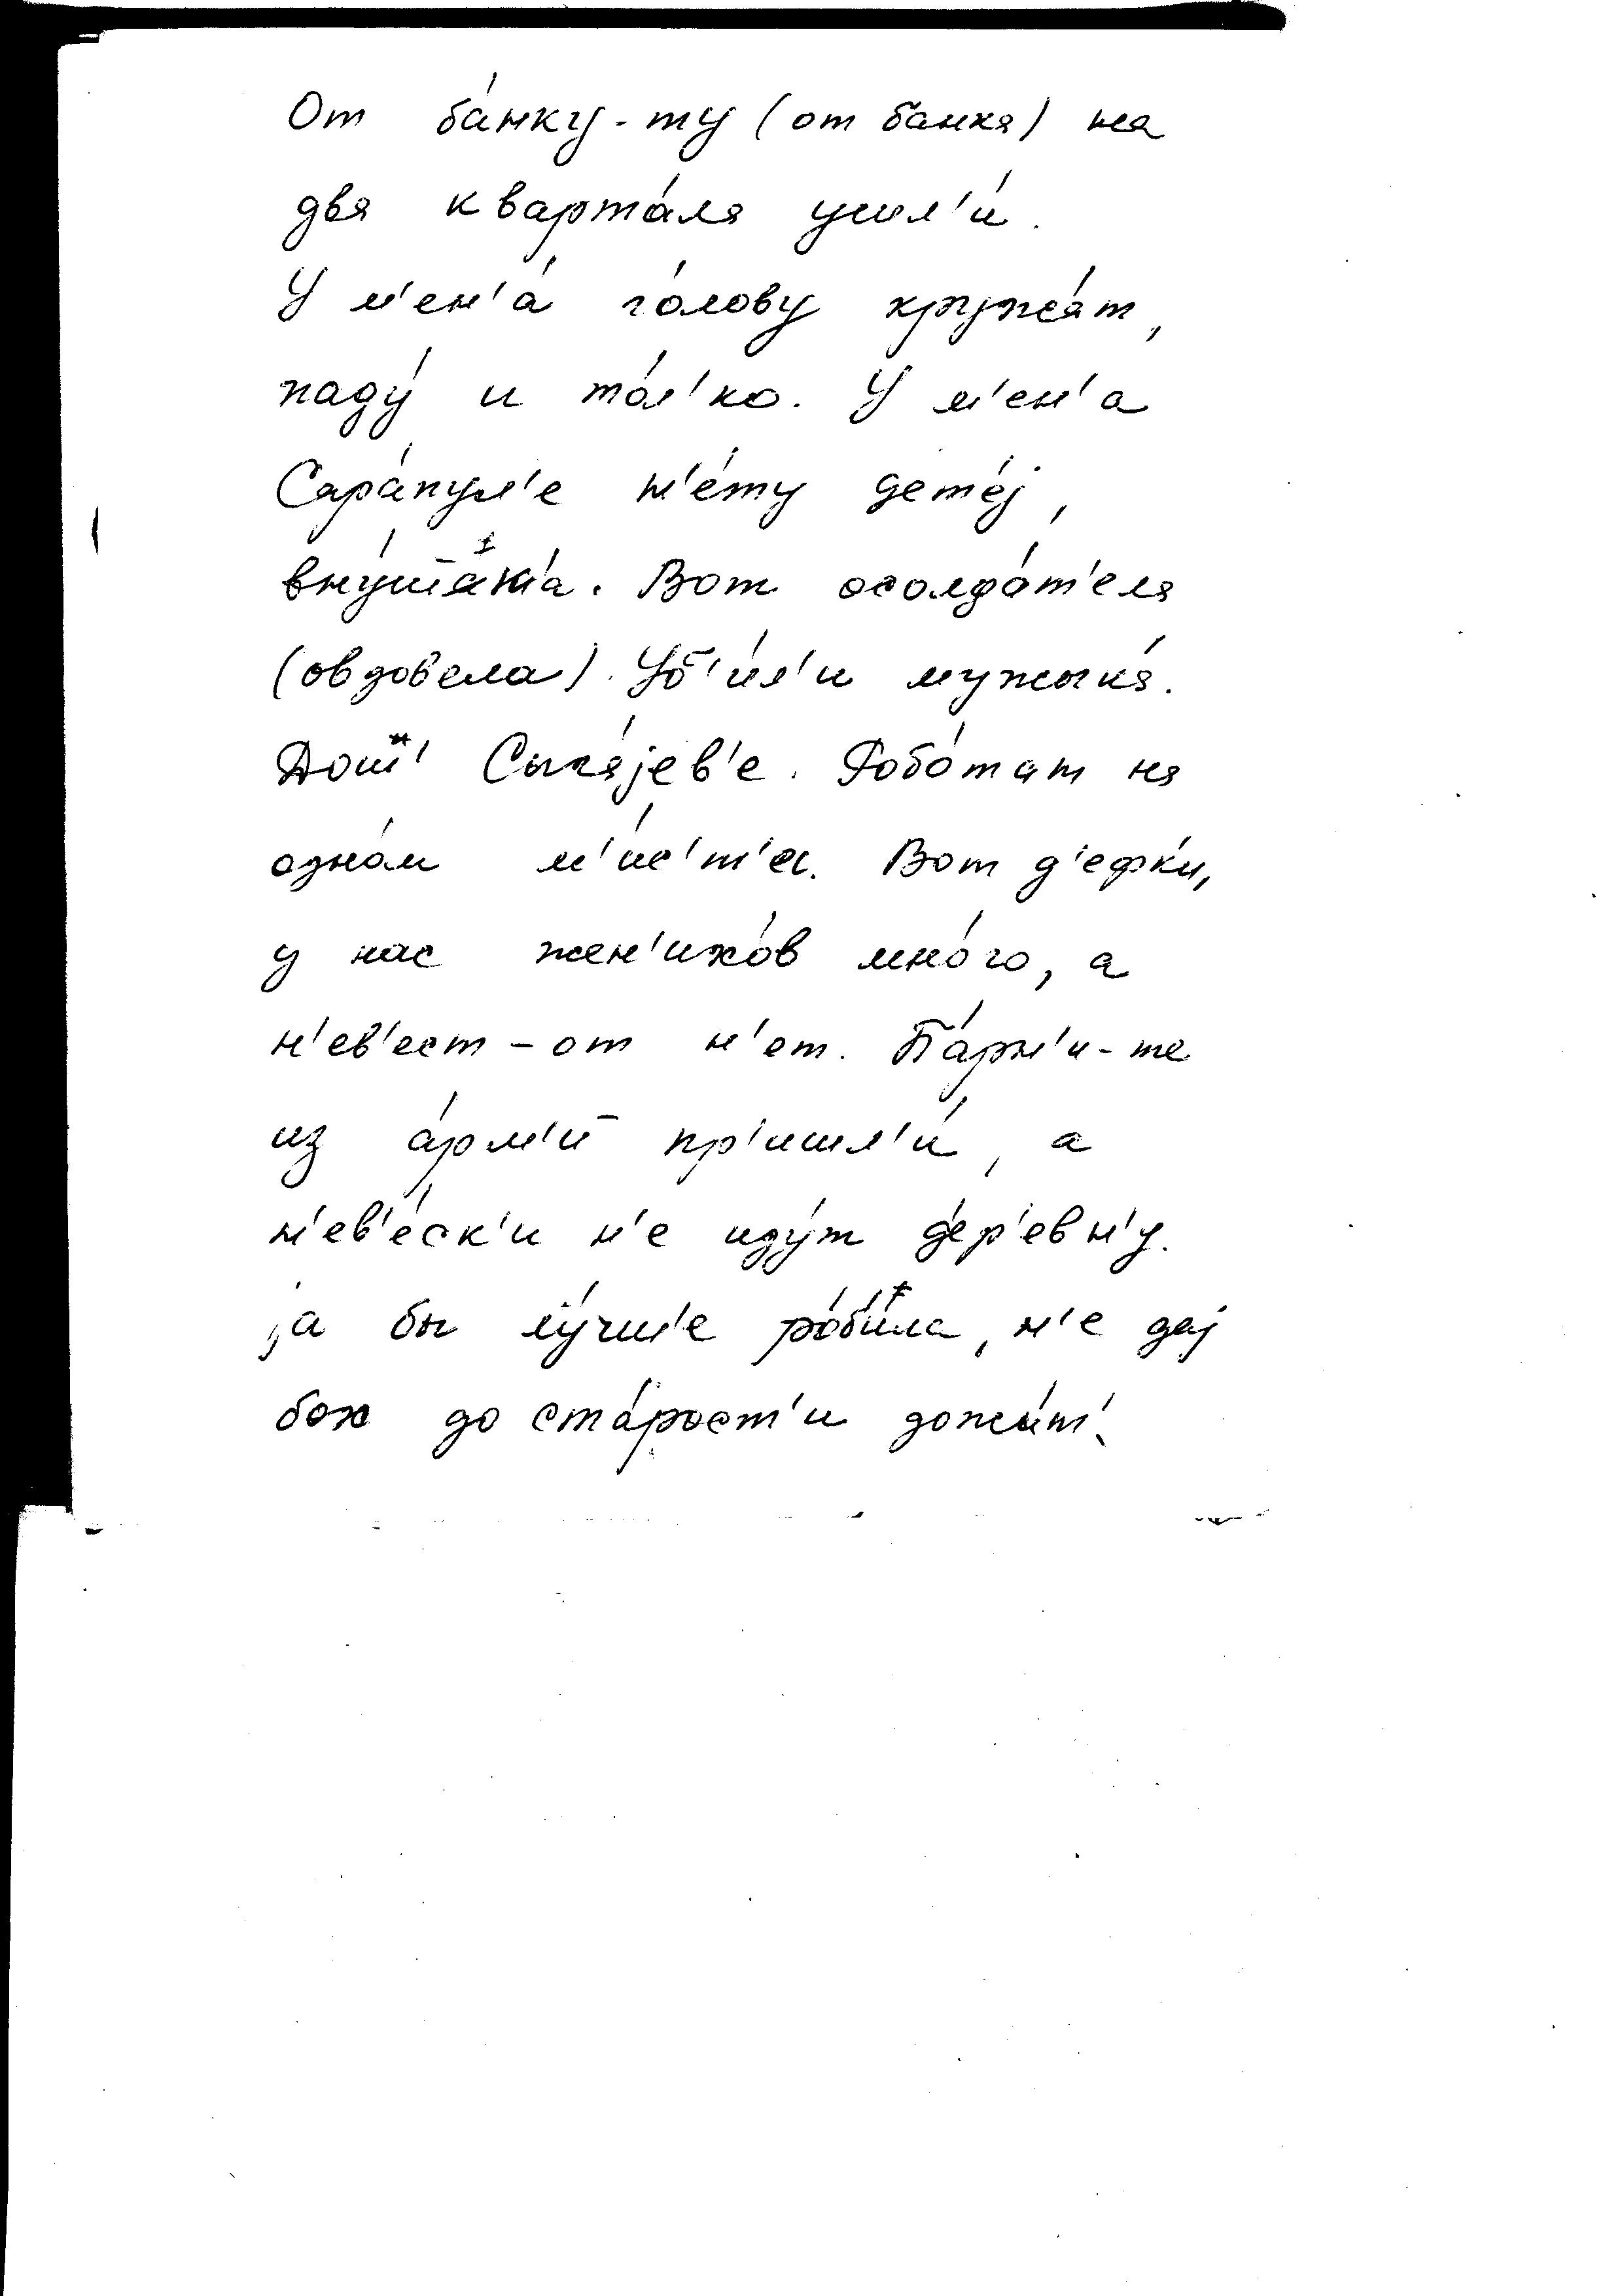 От ба́нку-ту (от банка) на
два кварта́ла ушл'и́.
У м'ен'а́ го́лову кружа́т,
паду́ и то́л'ко. У м'ен'а
Сара́пул'е н'е́ту дете́j,
Вот осолда́т'ела
(овдов'ела). Уб'и́л'и мужыка́.
Сыга́jев'е. Робо́тат на
одно́м м'и́с'т'е. Вот д'е́фки,
у нас жен'ихо́в мно́го, а
н'ев'ест-от н'ет. Па́рн'и-те
из а́рм'ии пр'ишл'и́, а
н'ев'е́ск'и н'е иду́т д'ер'евн'у.
ja бы лу́чш'е ро́б'ила, н'е даj
бох до ста́рост'и дожи́т'.